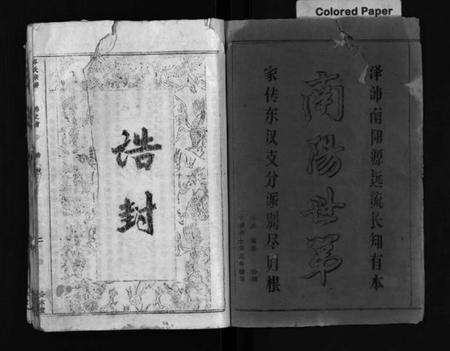 Colored Paper
泽沛南阳源远流长知有本
南阳世第
家传东汉支分派别尽归根
诰封